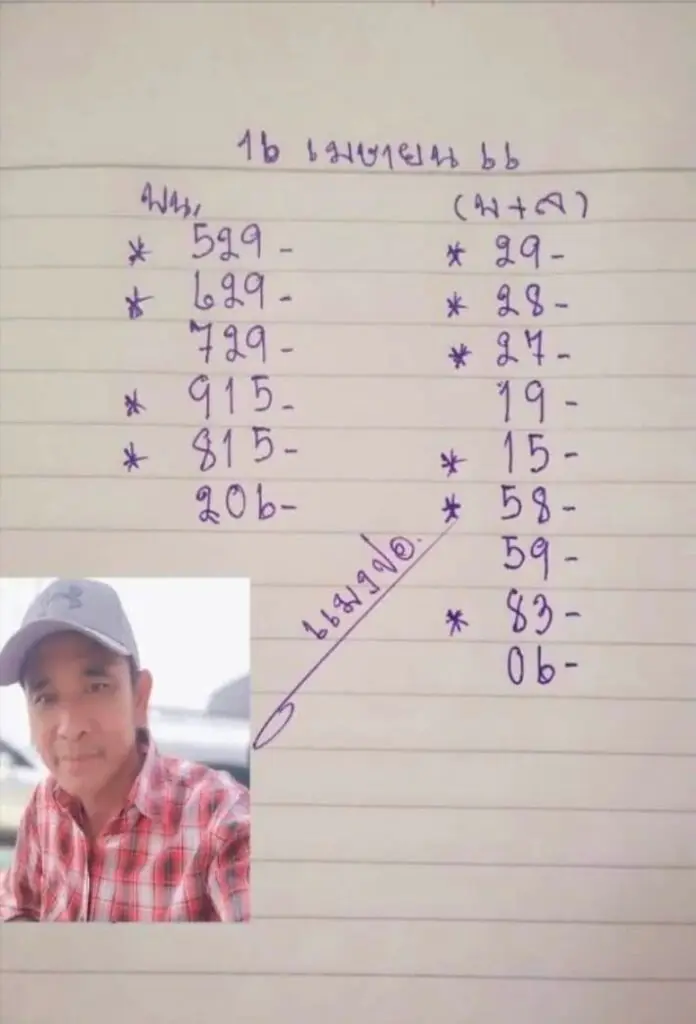 16 เมษายน 66
บน,
(บ+ล)
* 529-
* 629-
729-
* 915-
* 815-
206-
* 29-
* 28-
* 27-
19-
* 15-
* 58-
59-
* 83-
06-